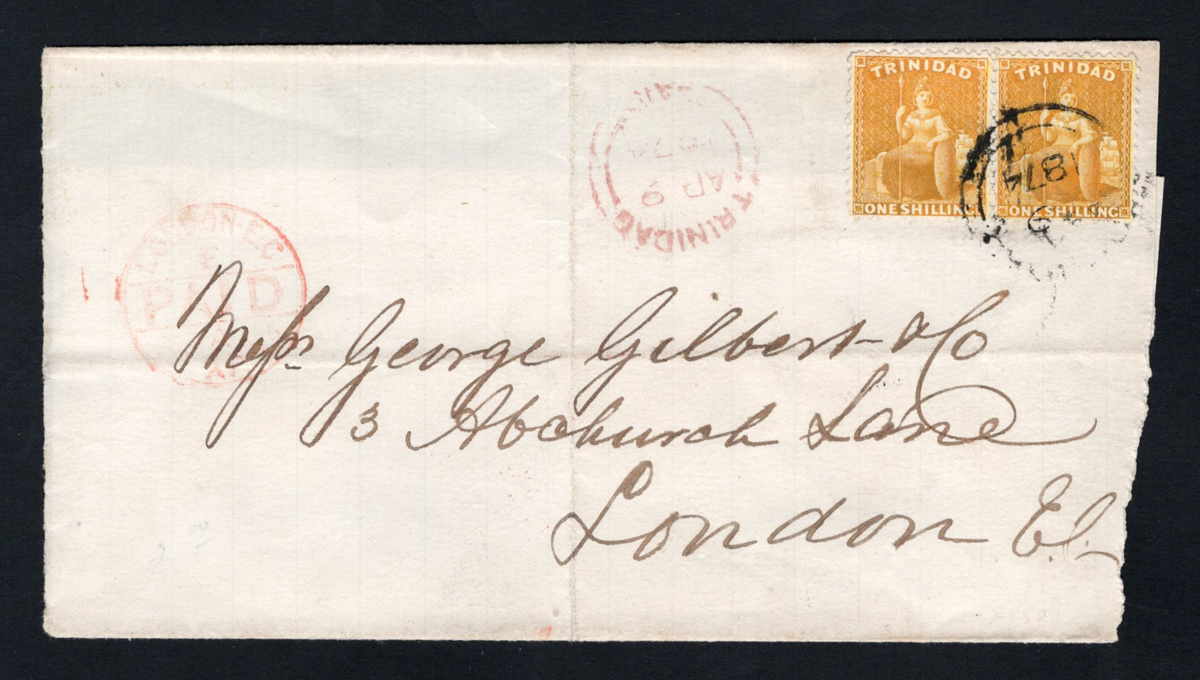 TRINIDAD TRINIDAD
ONE SHILLING ONE SHILLING
TRINIDAD
AP 9
1874
LONDON·E.C
PAID
Messrs George Gilbert & Co
3 Abchurch Lane
London E.C.